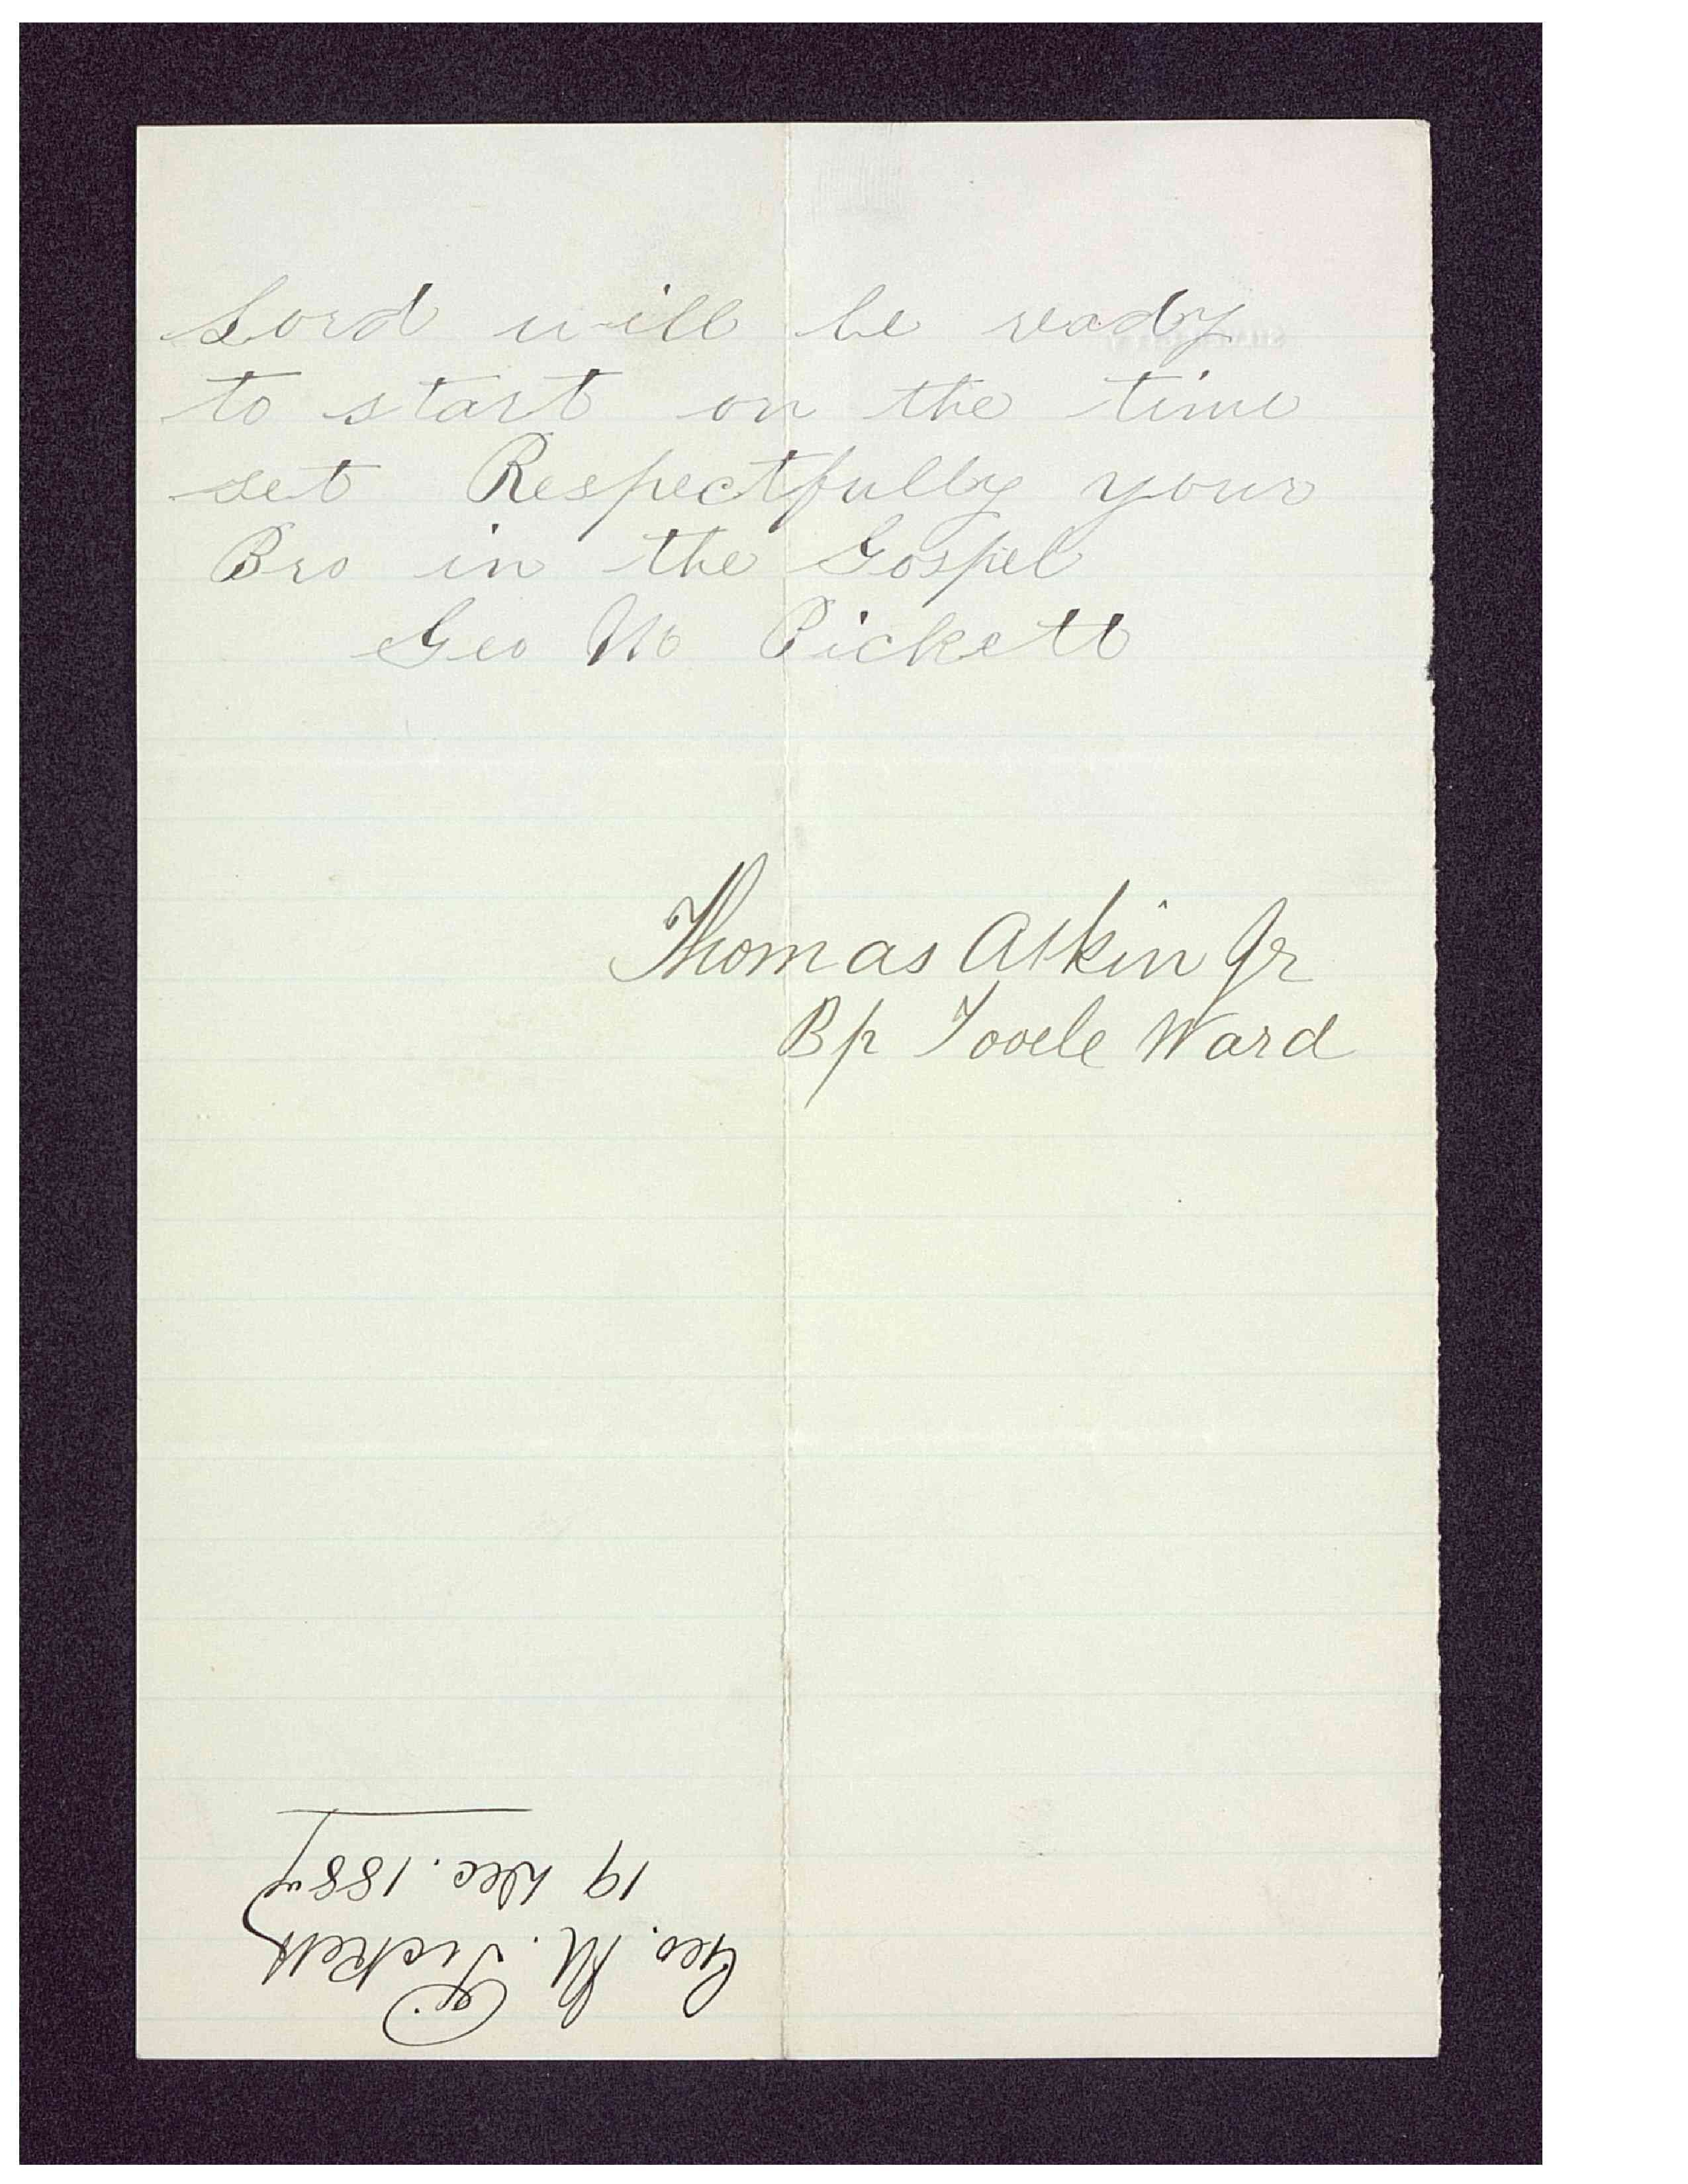 Lord will be ready
to start on the time
set Respectfully your
Bro in the Gospel
Geo M Pickett
Thomas Atkin Jr
Bp Tooele Ward
Geo. M. Pickett
19 Dec. 1887